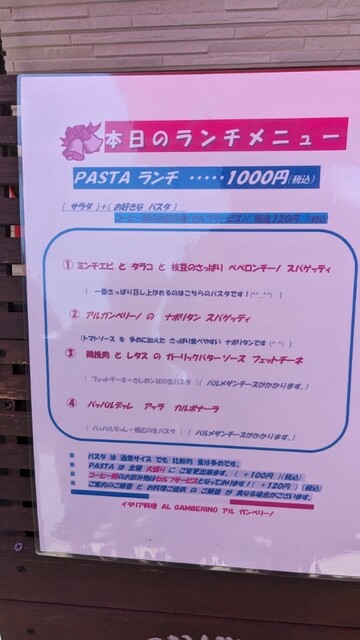 本日のランチメニュー
PASTA ランチ ・・・・・1000円(税込)
( サラダ )+( お好きな パスタ )
コーヒー類のお飲み物(セルフサービス)は 別途120円 )(税込
① ミンチエビ と タラコ と 枝豆のさっぱり ペペロンチーノ スパゲッティ
( 一番さっぱり召し上がれるのはこちらのパスタです！(^_^*) )
② アルガンベリーノ の ナポリタン スパゲティ
(トマトソース を 多めに加えた さっぱり食べやすい ナポリタンです (^^)  )
③ 鶏挽肉 と レタス の ガーリックバター ソース フェットチーネ
( フェットチーネ=きしめん状の生パスタ )( パルメザンチーズがかかります。)
④ パッパルデッレ アッラ カルボナーラ
( パッパルデッレ=幅広の生パスタ )( パルメザンチーズがかかります。)
※ パスタ は 通常サイズ でも 比較的 量は多めです。
※ PASTA は 全種 大盛り に ご変更出来ます。( +100円 )(税込)
※ コーヒー類のお飲み物はセルフサービスとなっております！( +120円 )(税込)
※ ご案内のご順番 と お料理ご提供 の ご順番 が 異なる場合がございます。
イタリア料理 AL GAMBERINO アル ガンベリーノ